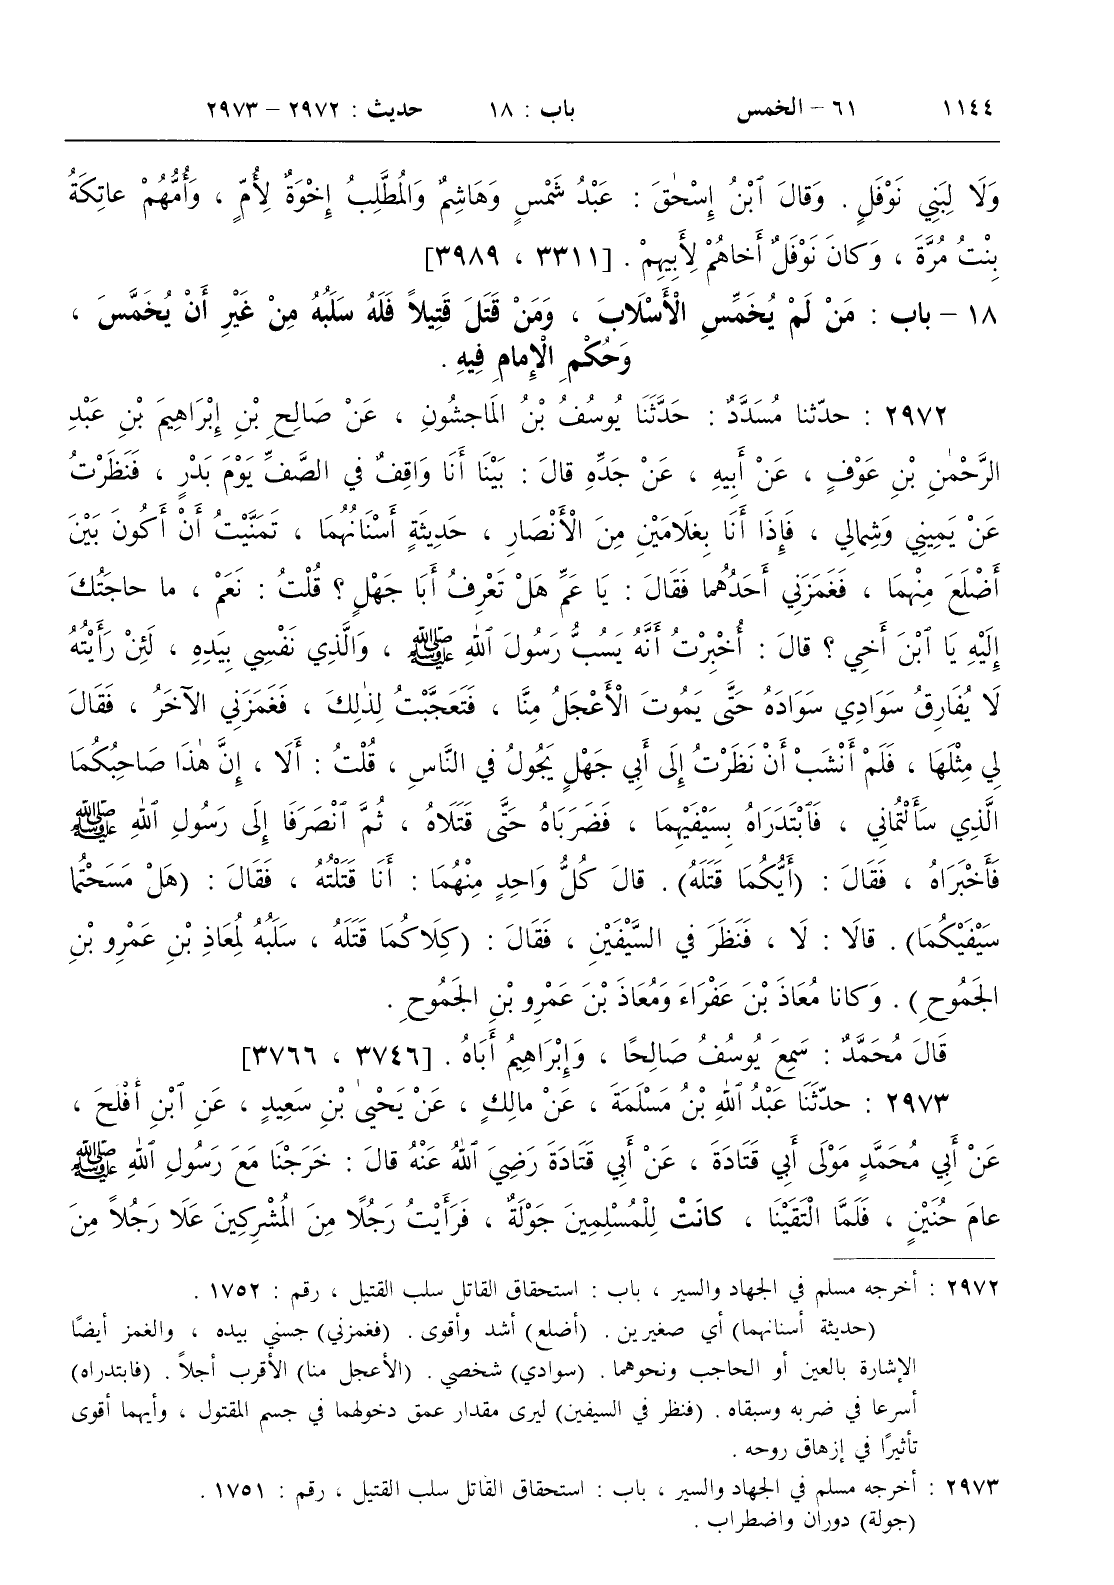 ١١٤٤ ٦١ - الخمس باب : ١٨ حديث : ٢٩٧٢ - ٢٩٧٣
وَلَا لِبَنِي نَوْفَلٍ . وَقَالَ ٱبْنُ إِسْحٰقَ : عَبْدُ شَمْسٍ وَهَاشِمٌ وَالمُطَّلِبُ إِخْوَةٌ لِأُمٍّ ، وَأُمُّهُمْ عاتِكَةُ
بِنْتُ مُرَّةَ ، وَكانَ نَوْفَلٌ أَخاهُمْ لِأَبِيهِمْ . [٣٣١١ ، ٣٩٨٩]
١٨ - باب : مَنْ لَمْ يُخَمِّسِ الْأَسْلَابَ ، وَمَنْ قَتَلَ قَتِيلاً فَلَهُ سَلَبُهُ مِنْ غَيْرِ أَنْ يُخَمَّسَ ،
وَحُكْمِ الْإِمامِ فِيهِ .
٢٩٧٢ : حدّثنا مُسَدَّدٌ : حَدَّثَنَا يُوسُفُ بْنُ المَاجِشُونِ ، عَنْ صَالِحِ بْنِ إِبْرَاهِيمَ بْنِ عَبْدِ
الرَّحْمٰنِ بْنِ عَوْفٍ ، عَنْ أَبِيهِ ، عَنْ جَدِّهِ قالَ : بَيْنَا أَنَا وَاقِفٌ في الصَّفِّ يَوْمَ بَدْرٍ ، فَنَظَرْتُ
عَنْ يَمِينِي وَشِمالِي ، فَإِذَا أَنَا بِغلَامَيْنِ مِنَ الْأَنْصَارِ ، حَدِيثَةٍ أَسْنَانُهُمَا ، تَمَنَّيْتُ أَنْ أَكُونَ بَيْنَ
أَضْلَعَ مِنْهِمَا ، فَغَمَزَنِي أَحَدُهُما فَقَالَ : يَا عَمِّ هَلْ تَعْرِفُ أَبَا جَهْلٍ ؟ قُلْتُ : نَعَمْ ، ما حاجَتُكَ
إِلَيْهِ يَا ٱبْنَ أَخِي ؟ قالَ : أُخْبِرْتُ أَنَّهُ يَسُبُّ رَسُولَ ٱللهِ ﷺ ، وَالَّذِي نَفْسِي بِيَدِهِ ، لَئِنْ رَأَيْتُهُ
لَا يُفَارِقُ سَوَادِي سَوَادَهُ حَتَّى يَمُوتَ الْأَعْجَلُ مِنَّا ، فَتَعَجَّبْتُ لِذٰلِكَ ، فَغَمَزَنِي الآخَرُ ، فَقَالَ
لِي مِثْلَهَا ، فَلَمْ أَنْشَبْ أَنْ نَظَرْتُ إِلَى أَبِي جَهْلٍ يَجُولُ في النَّاسِ ، قُلْتُ : أَلَا ، إِنَّ هٰذَا صَاحِبُكُمَا
الَّذِي سَأَلْتُمَانِي ، فَٱبْتَدَرَاهُ بِسَيْفَيْهِمَا ، فَضَرَبَاهُ حَتَّى قَتَلَاهُ ، ثُمَّ ٱنْصَرَفَا إِلَى رَسُولِ ٱللهِ ﷺ
فَأَخْبَرَاهُ ، فَقَالَ : (أَيُّكُمَا قَتَلَهُ) . قالَ كُلُّ وَاحِدٍ مِنْهُمَا : أَنَا قَتَلْتُهُ ، فَقَالَ : (هَلْ مَسَحْتُمَا
سَيْفَيْكُمَا) . قالَا : لَا ، فَنَظَرَ في السَّيْفَيْنِ ، فَقَالَ : (كِلَاكُمَا قَتَلَهُ ، سَلَبُهُ لِمُعَاذِ بْنِ عَمْرِو بْنِ
الجَمُوحِ) . وَكانا مُعَاذَ بْنَ عَفْرَاءَ وَمُعَاذَ بْنَ عَمْرِو بْنِ الجَمُوحِ .
قَالَ مُحَمَّدٌ : سَمِعَ يُوسُفُ صَالِحًا ، وَإِبْرَاهِيمُ أَبَاهُ . [٣٧٤٦ ، ٣٧٦٦]
٢٩٧٣ : حدّثَنَا عَبْدُ ٱللهِ بْنُ مَسْلَمَةَ ، عَنْ مالِكٍ ، عَنْ يَحْيَىٰ بْنِ سَعِيدٍ ، عَنِ ٱبْنِ أَفْلَحَ ،
عَنْ أَبِي مُحَمَّدٍ مَوْلَى أَبِي قَتَادَةَ ، عَنْ أَبِي قَتَادَةَ رَضِيَ ٱللهُ عَنْهُ قالَ : خَرَجْنَا مَعَ رَسُولِ ٱللهِ ﷺ
عامَ حُنَيْنٍ ، فَلَمَّا الْتَقَيْنَا ، كانَتْ لِلْمُسْلِمِينَ جَوْلَةٌ ، فَرَأَيْتُ رَجُلًا مِنَ المُشْرِكِينَ عَلَا رَجُلاً مِنَ
٢٩٧٢ : أخرجه مسلم في الجهاد والسير ، باب : استحقاق القاتل سلب القتيل ، رقم : ١٧٥٢ .
(حديثة أسنانهما) أي صغيرين . (أضلع) أشد وأقوى . (فغمزني) جسني بيده ، والغمز أيضًا
الإشارة بالعين أو الحاجب ونحوهما . (سوادي) شخصي . (الأعجل منا) الأقرب أجلاً . (فابتدراه)
أسرعا في ضربه وسبقاه . (فنظر في السيفين) ليرى مقدار عمق دخولهما في جسم المقتول ، وأيهما أقوى
تأثيرًا في إزهاق روحه .
٢٩٧٣ : أخرجه مسلم في الجهاد والسير ، باب : استحقاق القاتل سلب القتيل ، رقم : ١٧٥١ .
(جولة) دوران واضطراب .